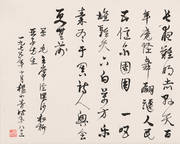 長夜難明赤縣天百
年魔怪舞翩躚人民
五億不團圓一唱
雄雞天下白萬方樂
奏有于闐詩人興會
更無前
毛主席浣溪沙和柳
亞子先生
一九七六年十月